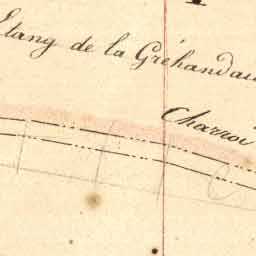 Etang de la Gréhandai
Charroi